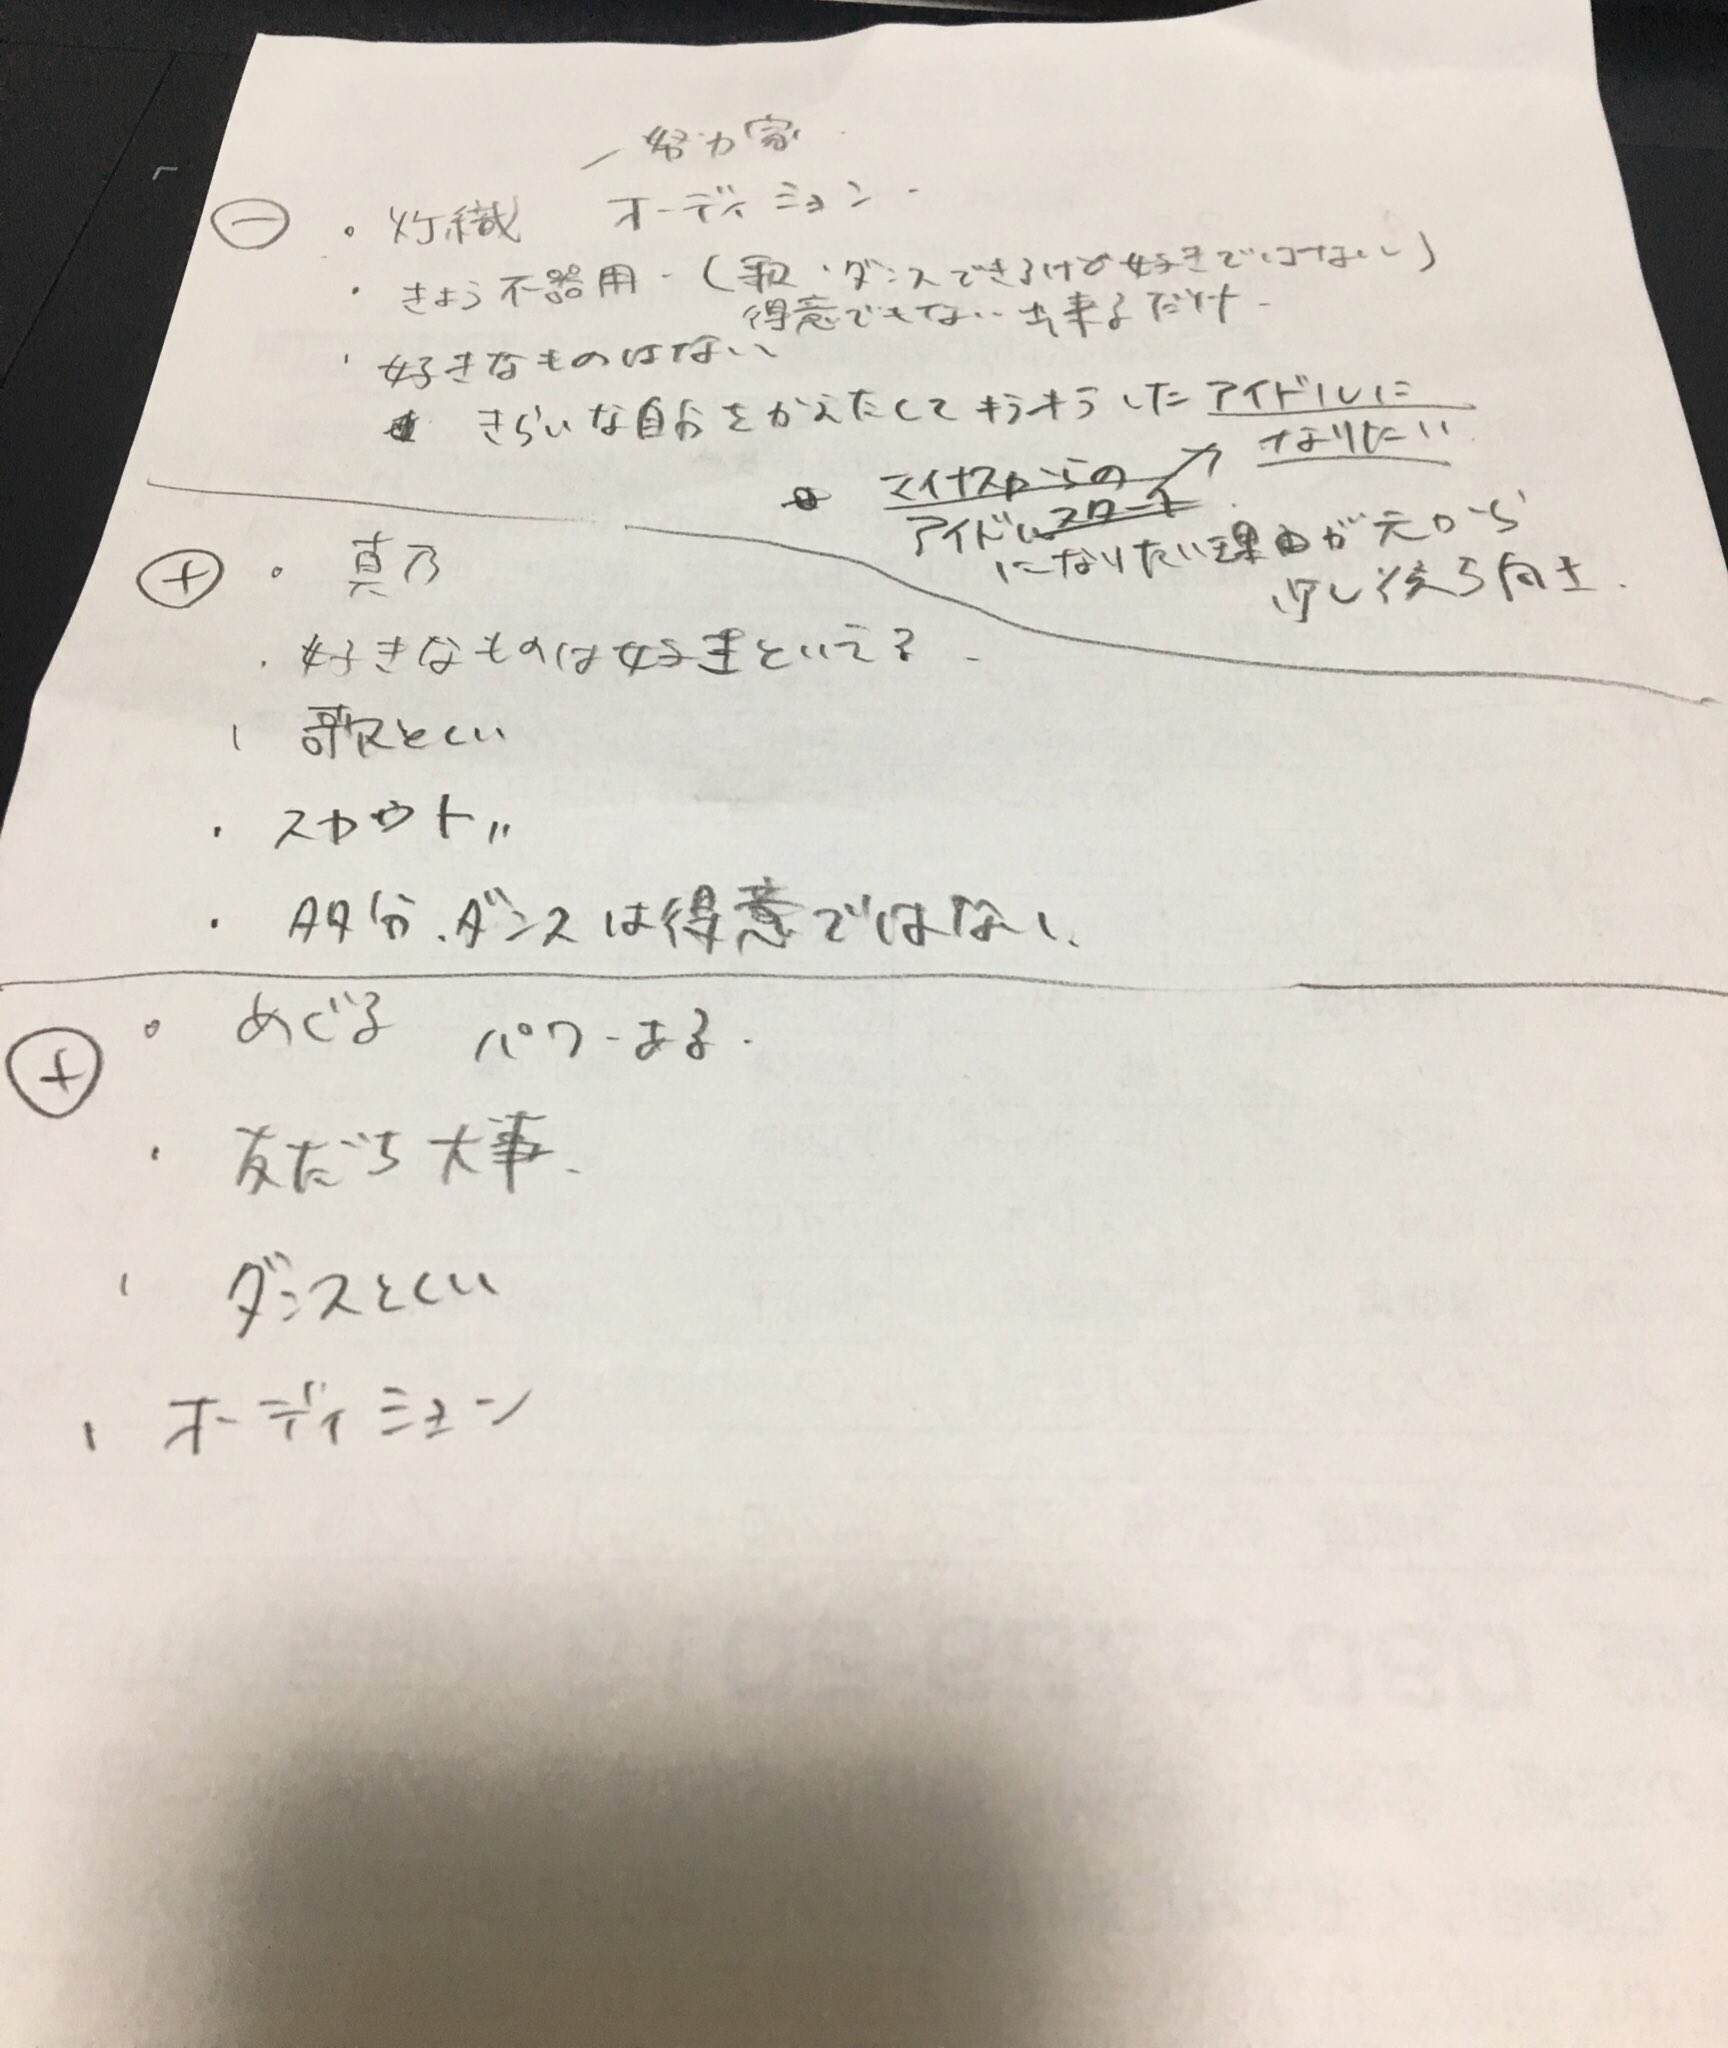 努力家
⊖ ・灯織 オーディション
・きよう不器用 (歌・ダンスできるけど好きではない)
得意でもない 出来るだけ
・好きなものはない
きらいな自分をかえたくて キラキラした アイドルに
なりたい
マイナスからの
スタート
アイドル
になりたい理由が元から
少し後ろ向き.
⊕ ・真乃
・好きなものは好きといえる
・歌とくい
・スカウト
・多分、ダンスは得意ではない、
⊕ ・めぐる パワーある.
・友だち大事、
・ダンスとくい
・オーディション